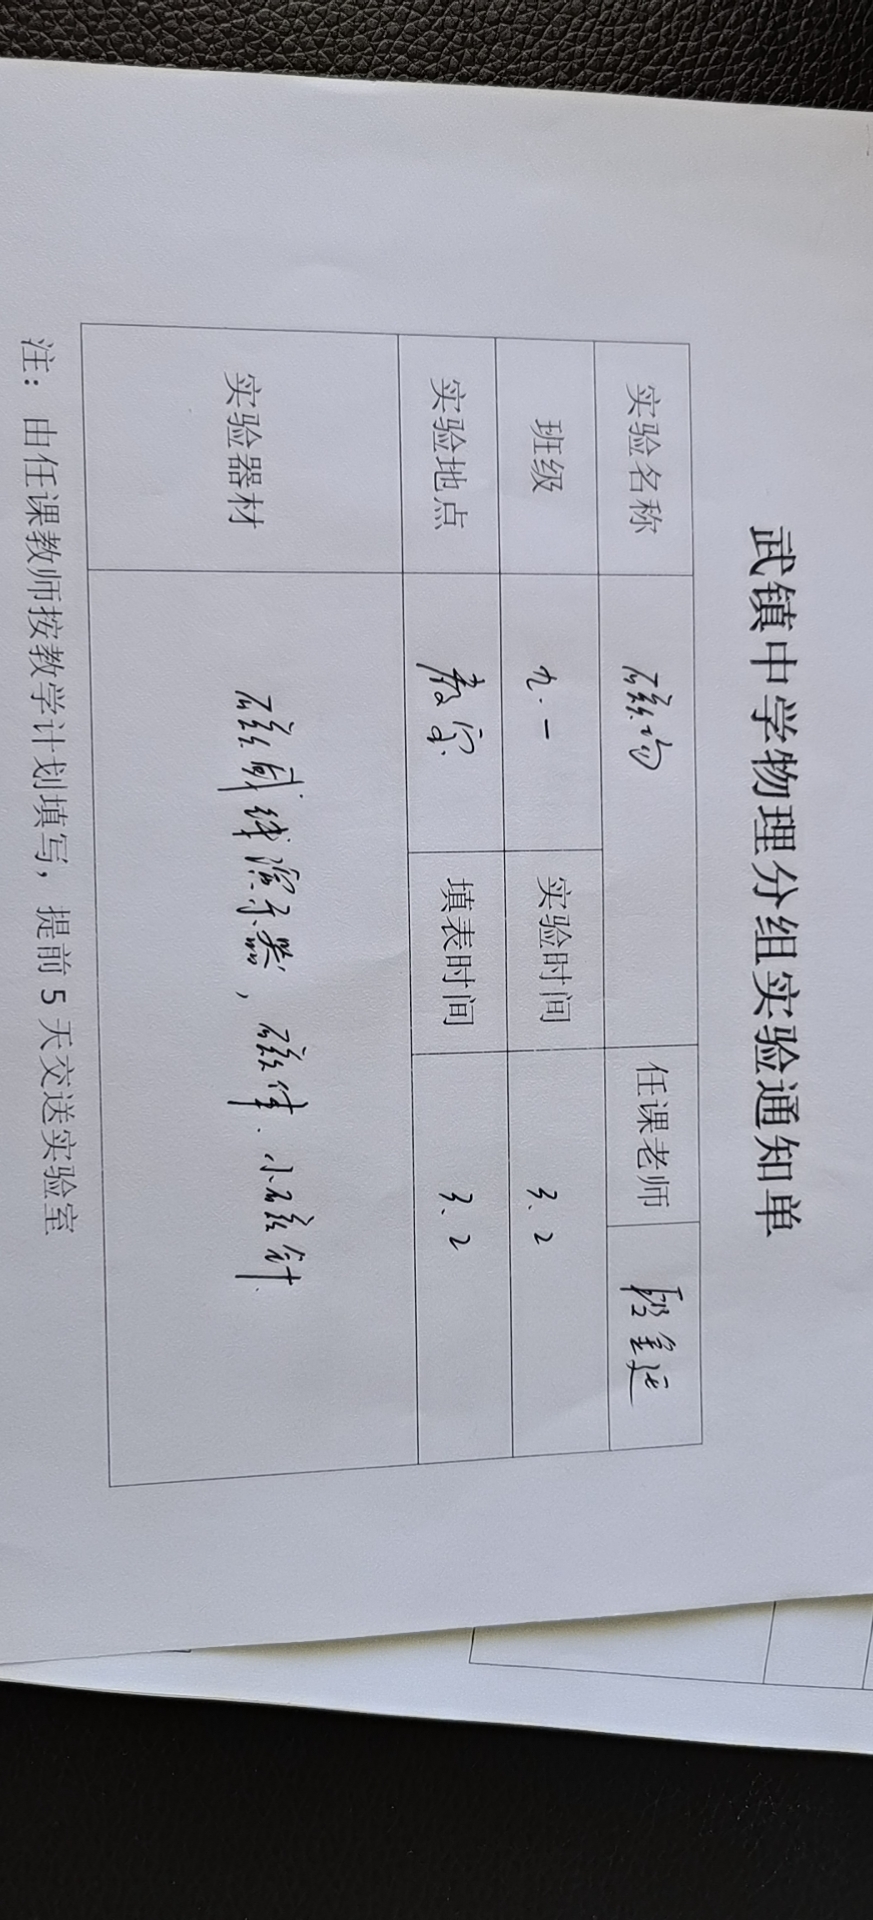 武镇中学物理分组实验通知单
实验名称 磁场 任课老师
班级 九.一 实验时间 3.2
实验地点 教室 填表时间 3.2
实验器材 磁感线演示器，磁体、小磁针.
注：由任课教师按教学计划填写，提前5天交送实验室